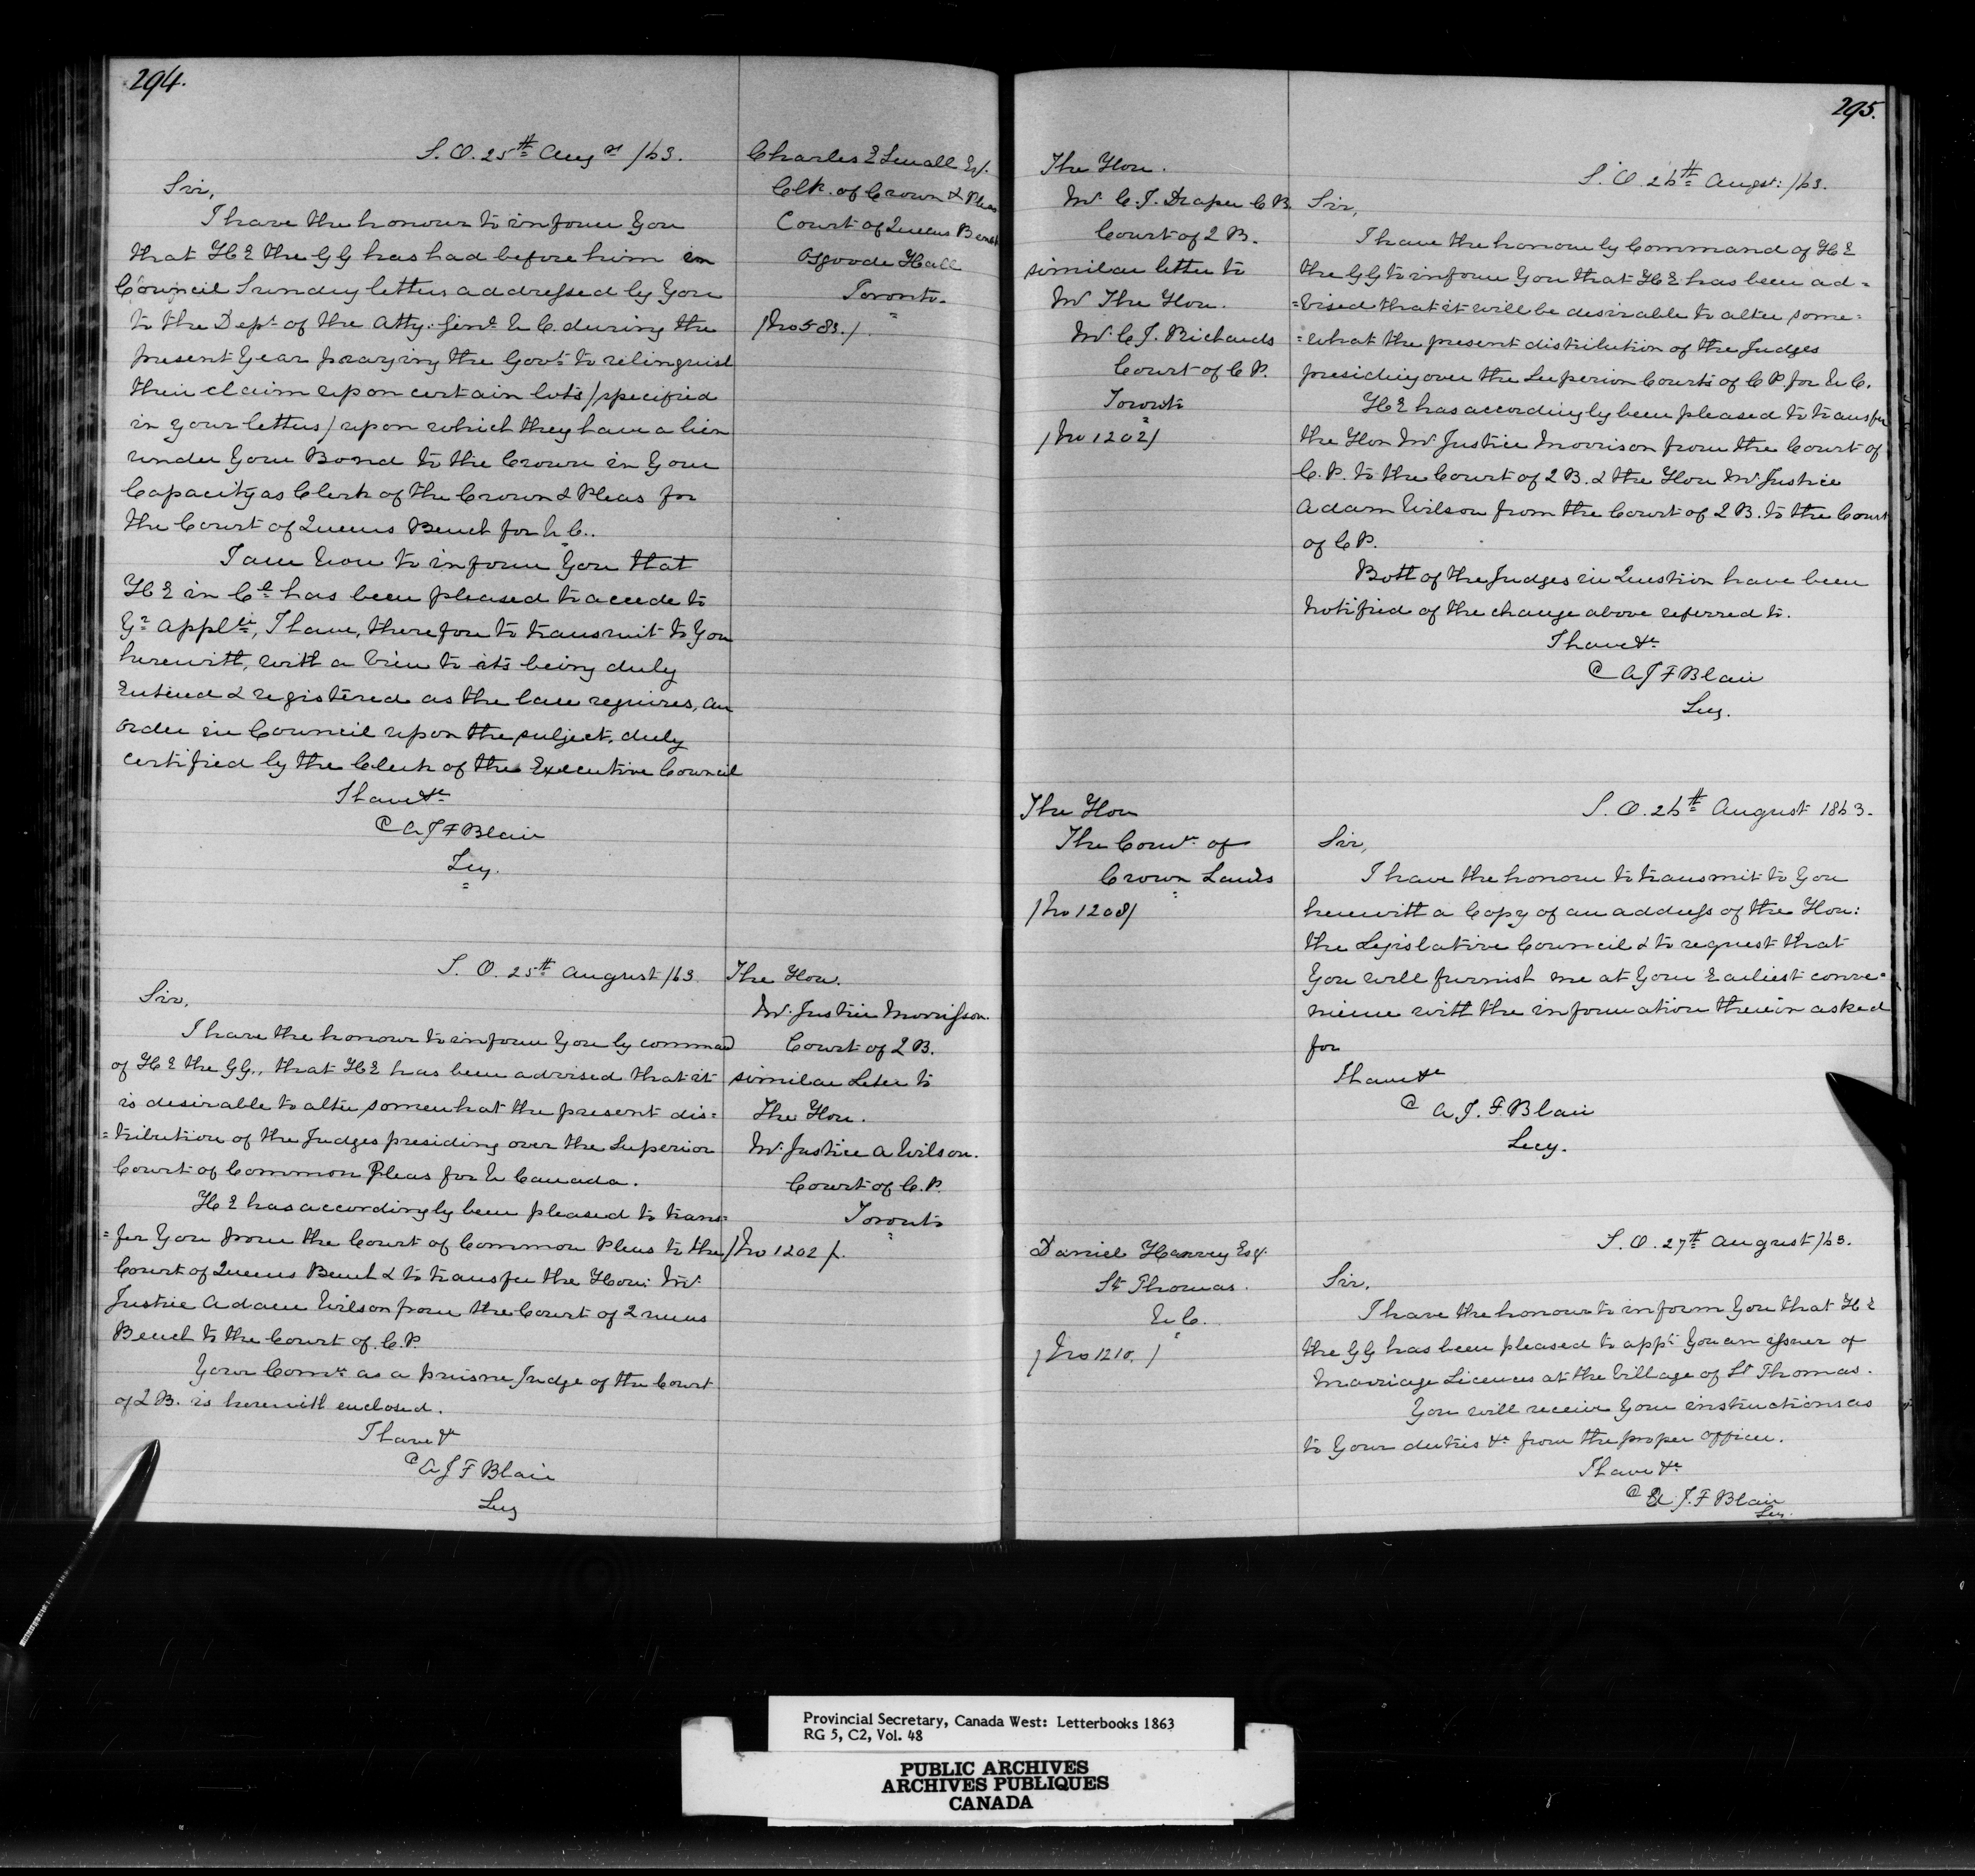 294.
S. O. 25th Augst /63.
Sir,
I have the honour to inform You
that H E the G G has had before him in
Council Sundry letters addressed by You
to the Dept of the Atty. Genl U C. during the
present Year praying the Govt to relinquish
their claim upon certain lots /specified
in Your letters/ upon which they have a lien
under Your Bond to the Crown in Your
Capacity as Clerk of the Crown & Pleas for
the Court of Queens Bench for U C..
I am now to inform You that
H E in Cl has been pleased to accede to
Yr Applti, I have, therefore to transmit to You
herewith, with a view to its being duly
Entered & registered as the Case requires, an
Order in Council upon the subject, duly
certified by the Clerk of the Executive Council
I have &c
E A J F Blair
Secy.
Charles E Small Esq.
Clk. of Crown & Pleas
Court of Queens Bench
Osgoode Hall
Toronto.
/No 583./
S. O. 25th August /63
Sir,
I have the honour to inform You by command
of H E the G G., that H E has been advised that it
is desirable to alter somewhat the present dis=
=tribution of the Judges presiding over the Superior
Court of Common Pleas for U Canada.
H E has accordingly been pleased to trans=
=fer You from the Court of Common Pleas to the
Court of Queens Bench & to transfer the Hon: Mr
Justice Adam Wilson from the Court of Queens
Bench to the Court of C. P.
Your Comn as a puisne Judge of the Court
of Q B. is herewith enclosed.
I have &c
A J F Blair
Secy
The Hon.
Mr Justice Morrisson.
Court of Q B.
similar Letter to
The Hon.
Mr Justice A Wilson.
Court of C. P.
Toronto
/No 1202/.
295.
The Hon.
Mr C. J. Draper C B.
Court of Q B.
similar letter to
Mr The Hon.
Mr C J. Richards
Court of C P.
Toronto
/No 1202/
S. O. 26th Augst: /63.
Sir,
I have the honour by Command of H E
the G G to inform You that H E has been ad=
=vised that it will be desirable to alter some=
=what the present distribution of the Judges
presiding over the Superior Courts of C P. for U C.
H E has accordingly been pleased to transfer
the Hon Mr Justice Morrison from the Court of
C. P. to the Court of Q B. & the Hon Mr Justice
Adam Wilson from the Court of Q B. to the Court
of C P.
Both of the Judges in Question have been
Notified of the change above referred to.
I have &c
A J F Blair
Secy.
The Hon
The Comr of
Crown Lands
/No 1208/
S. O. 26th August 1863.
Sir,
I have the honour to transmit to You
herewith a Copy of an address of the Hon:
the Legislative Council & to request that
You will furnish me at Your Earliest conve=
nience with the information therein asked
for
I have &c
A. J. F. Blair
Secy.
Daniel Harvey Esq.
St Thomas.
U C.
/No 1210. /
S. O. 27th August /63.
Sir,
I have the honour to inform You that H E
the G G has been pleased to appt You an issuer of
Marriage Licences at the Village of St Thomas.
You will receive Your instructions as
to Your duties &c from the proper Officer.
I have &c
A J. F Blair
Secy.
Provincial Secretary, Canada West: Letterbooks 1863
RG 5, C2, Vol. 48
PUBLIC ARCHIVES
ARCHIVES PUBLIQUES
CANADA